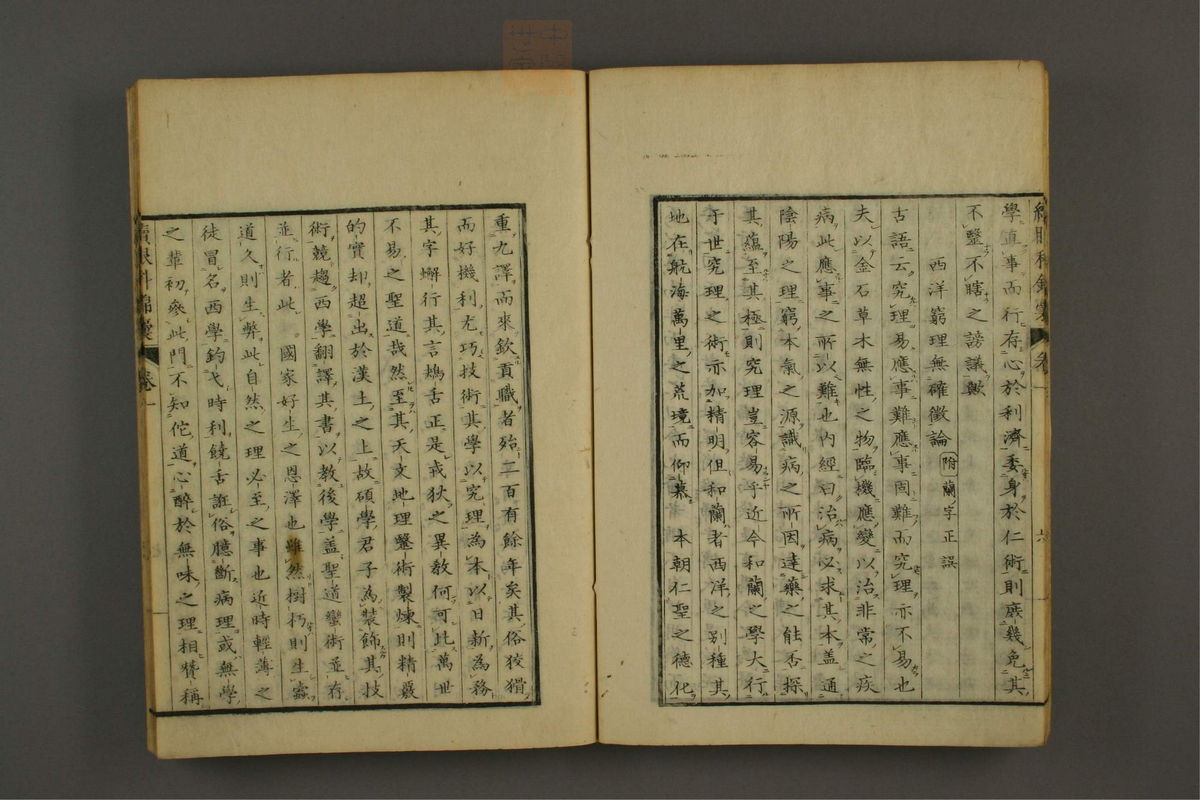 學直事而行存心於利濟委身於仁術則庶幾免其
不毉不瞎之謗議歟
西洋窮理無確徵論 附蘭字正誤
古語云究理易應事難應事固難而究理亦不易也
夫以金石草木無性之物臨機應變以治非常之疾
病此應事之所以難也內經曰治病必求其本盖通
陰陽之理窮本氣之源識病之所因達藥之能否探
其蘊至其極則究理豈容易乎近今和蘭之學大行
于世究理之術亦加精明但和蘭者西洋之別種其
地在航海萬里之荒境而仰慕 本朝仁聖之德化
重九譯而來欽貢職者殆二百有餘年矣其俗狡猾
而好機利尤巧技術其學以究理為本以日新為務
其字蠏行其言鴂舌正是戎狄之異教何可比萬世
不易之聖道哉然至其天文地理毉術製煉則精嚴
的實却超出於漢土之上故碩學君子為裝飾其技
術競趨西學翻譯其書以教後學盖聖道蠻術並存
並行者此 國家好生之恩澤也雖然樹朽則生蠧
道久則生弊此自然之理必至之事也近時輕薄之
徒冒名西學釣弋時利饒舌誑俗臆斷病理或無學
之輩初參此門不知佗道心醉於無味之理相贊稱
續眼科錦囊 卷一
卷一 六